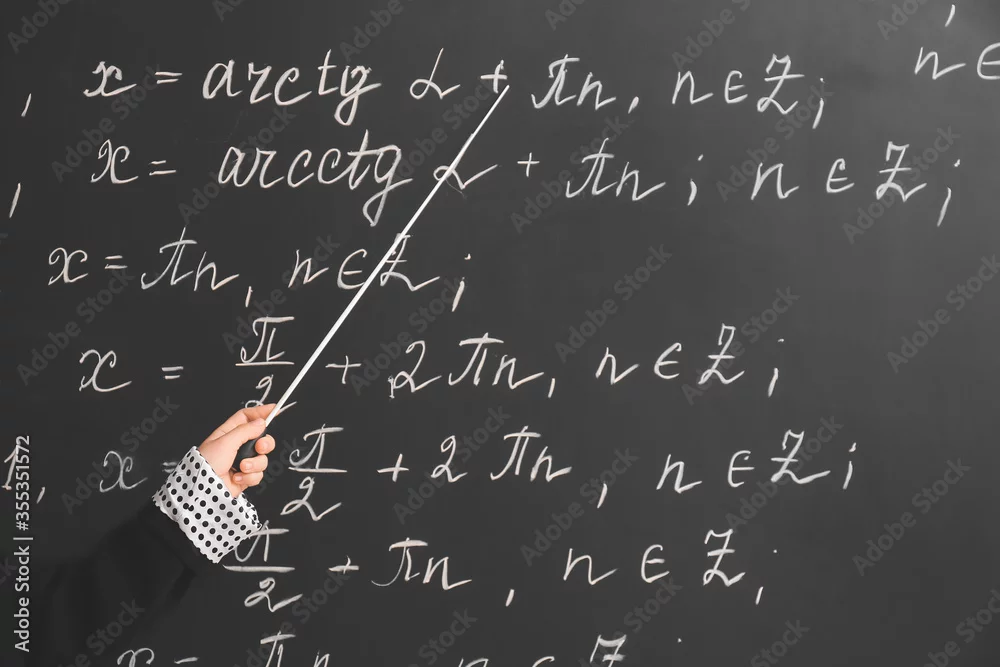 n ∈
, x = arctg α + πn, n ∈ Z;
, x = arcctg α + πn; n ∈ Z;
x = πn, n ∈ Z;
x = π/2 + 2πn, n ∈ Z;
, x = π/2 + 2πn, n ∈ Z;
π/2 + πn, n ∈ Z;
x =
Adobe Stock | #355351572